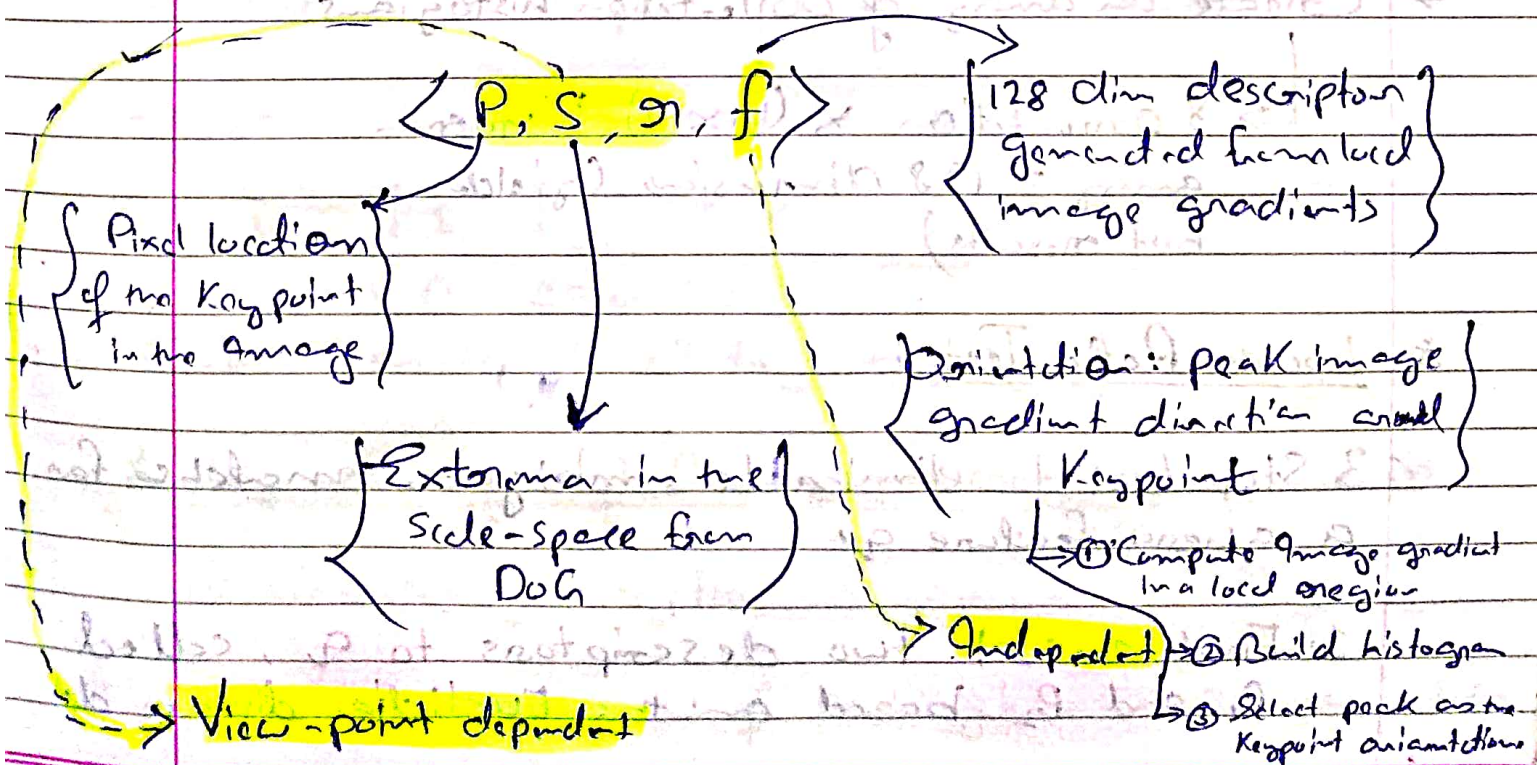 < P, S, r, f >
128 dim descriptor
generated from local
image gradients
Pixel location
of the Keypoint
in the Image
Orientation: peak image
gradient direction around
Keypoint
Extorema in the
Scale-space from
DoG
① Compute Image gradient
in a local region
② Build histogram
③ Select peak as the
Keypoint orientation
Independent
View-point dependent